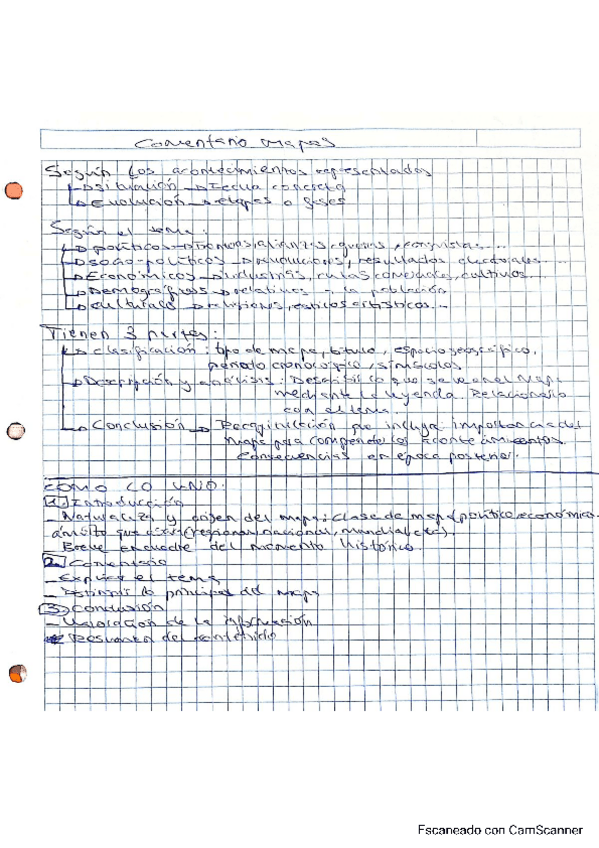 Comentario mapas
Según los acontecimientos representados
↳ Situación → Fecha concreta
↳ Evolución → etapas o fases
Según el tema:
↳ políticos → fronteras, alianzas, guerras, conquistas...
↳ Socio-políticos → revoluciones, resultados electorales...
↳ Económicos → industrias, rutas comerciales, cultivos...
↳ Demográficos → relativos a la población
↳ culturales → religiones, estilos artísticos...
Tienen 3 partes:
↳ clasificación: tipo de mapa, título, espacio geográfico,
período cronológico, símbolos.
↳ Descripción y análisis: Describir lo que se ve en el mapa
mediante la leyenda. Relacionarlo
con el tema.
↳ Conclusión → Recapitulación que incluya importancia del
mapa para comprender los acontecimientos.
Consecuencias en época posterior.
COMO LO UNO:
1. Introducción
- Naturaleza y origen del mapa: clase de mapa (político, económico.
ámbito que (regional, nacional, mundial, etc).
- Breve encuadre del momento histórico.
2. Comentario
- Explicar el tema
- lo principal del mapa
3. Conclusión
- Valoración de la información
- Resumen del contenido
Escaneado con CamScanner